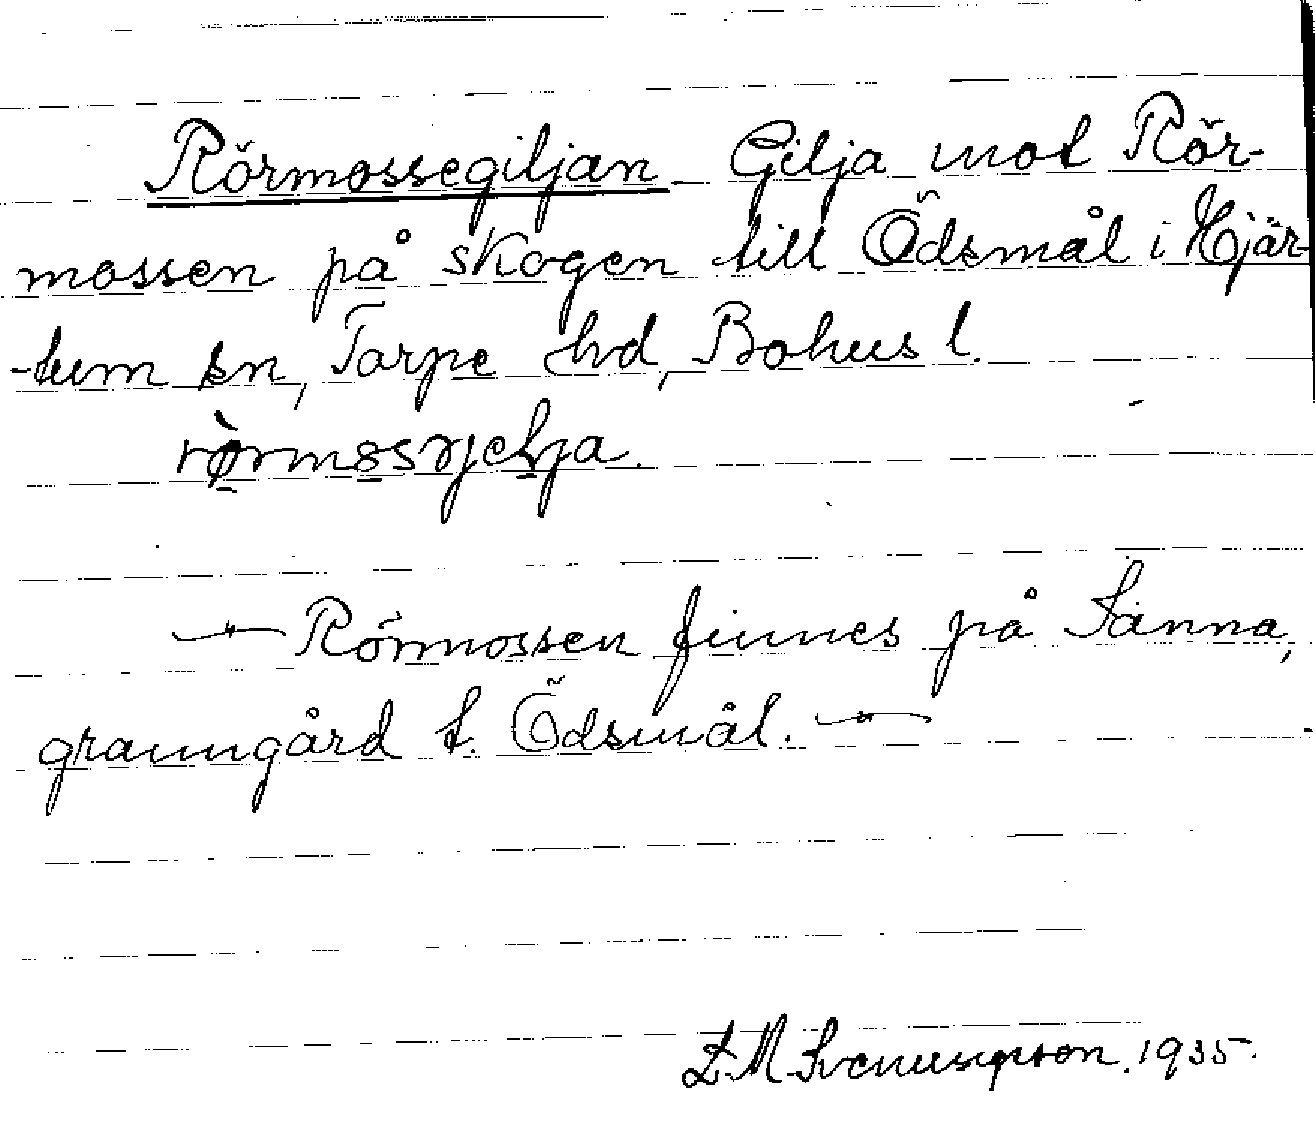 Rörmossegiljan Gilja mot Rör-
mossen på skogen till Ödsmål i Hjär-
-tum sn, Torpe hd, Bohus l.
rørmosəjelja.
— Rörmossen finnes på Sanna,
granngård t. Ödsmål. —
D. M. Svenungsson. 1935.